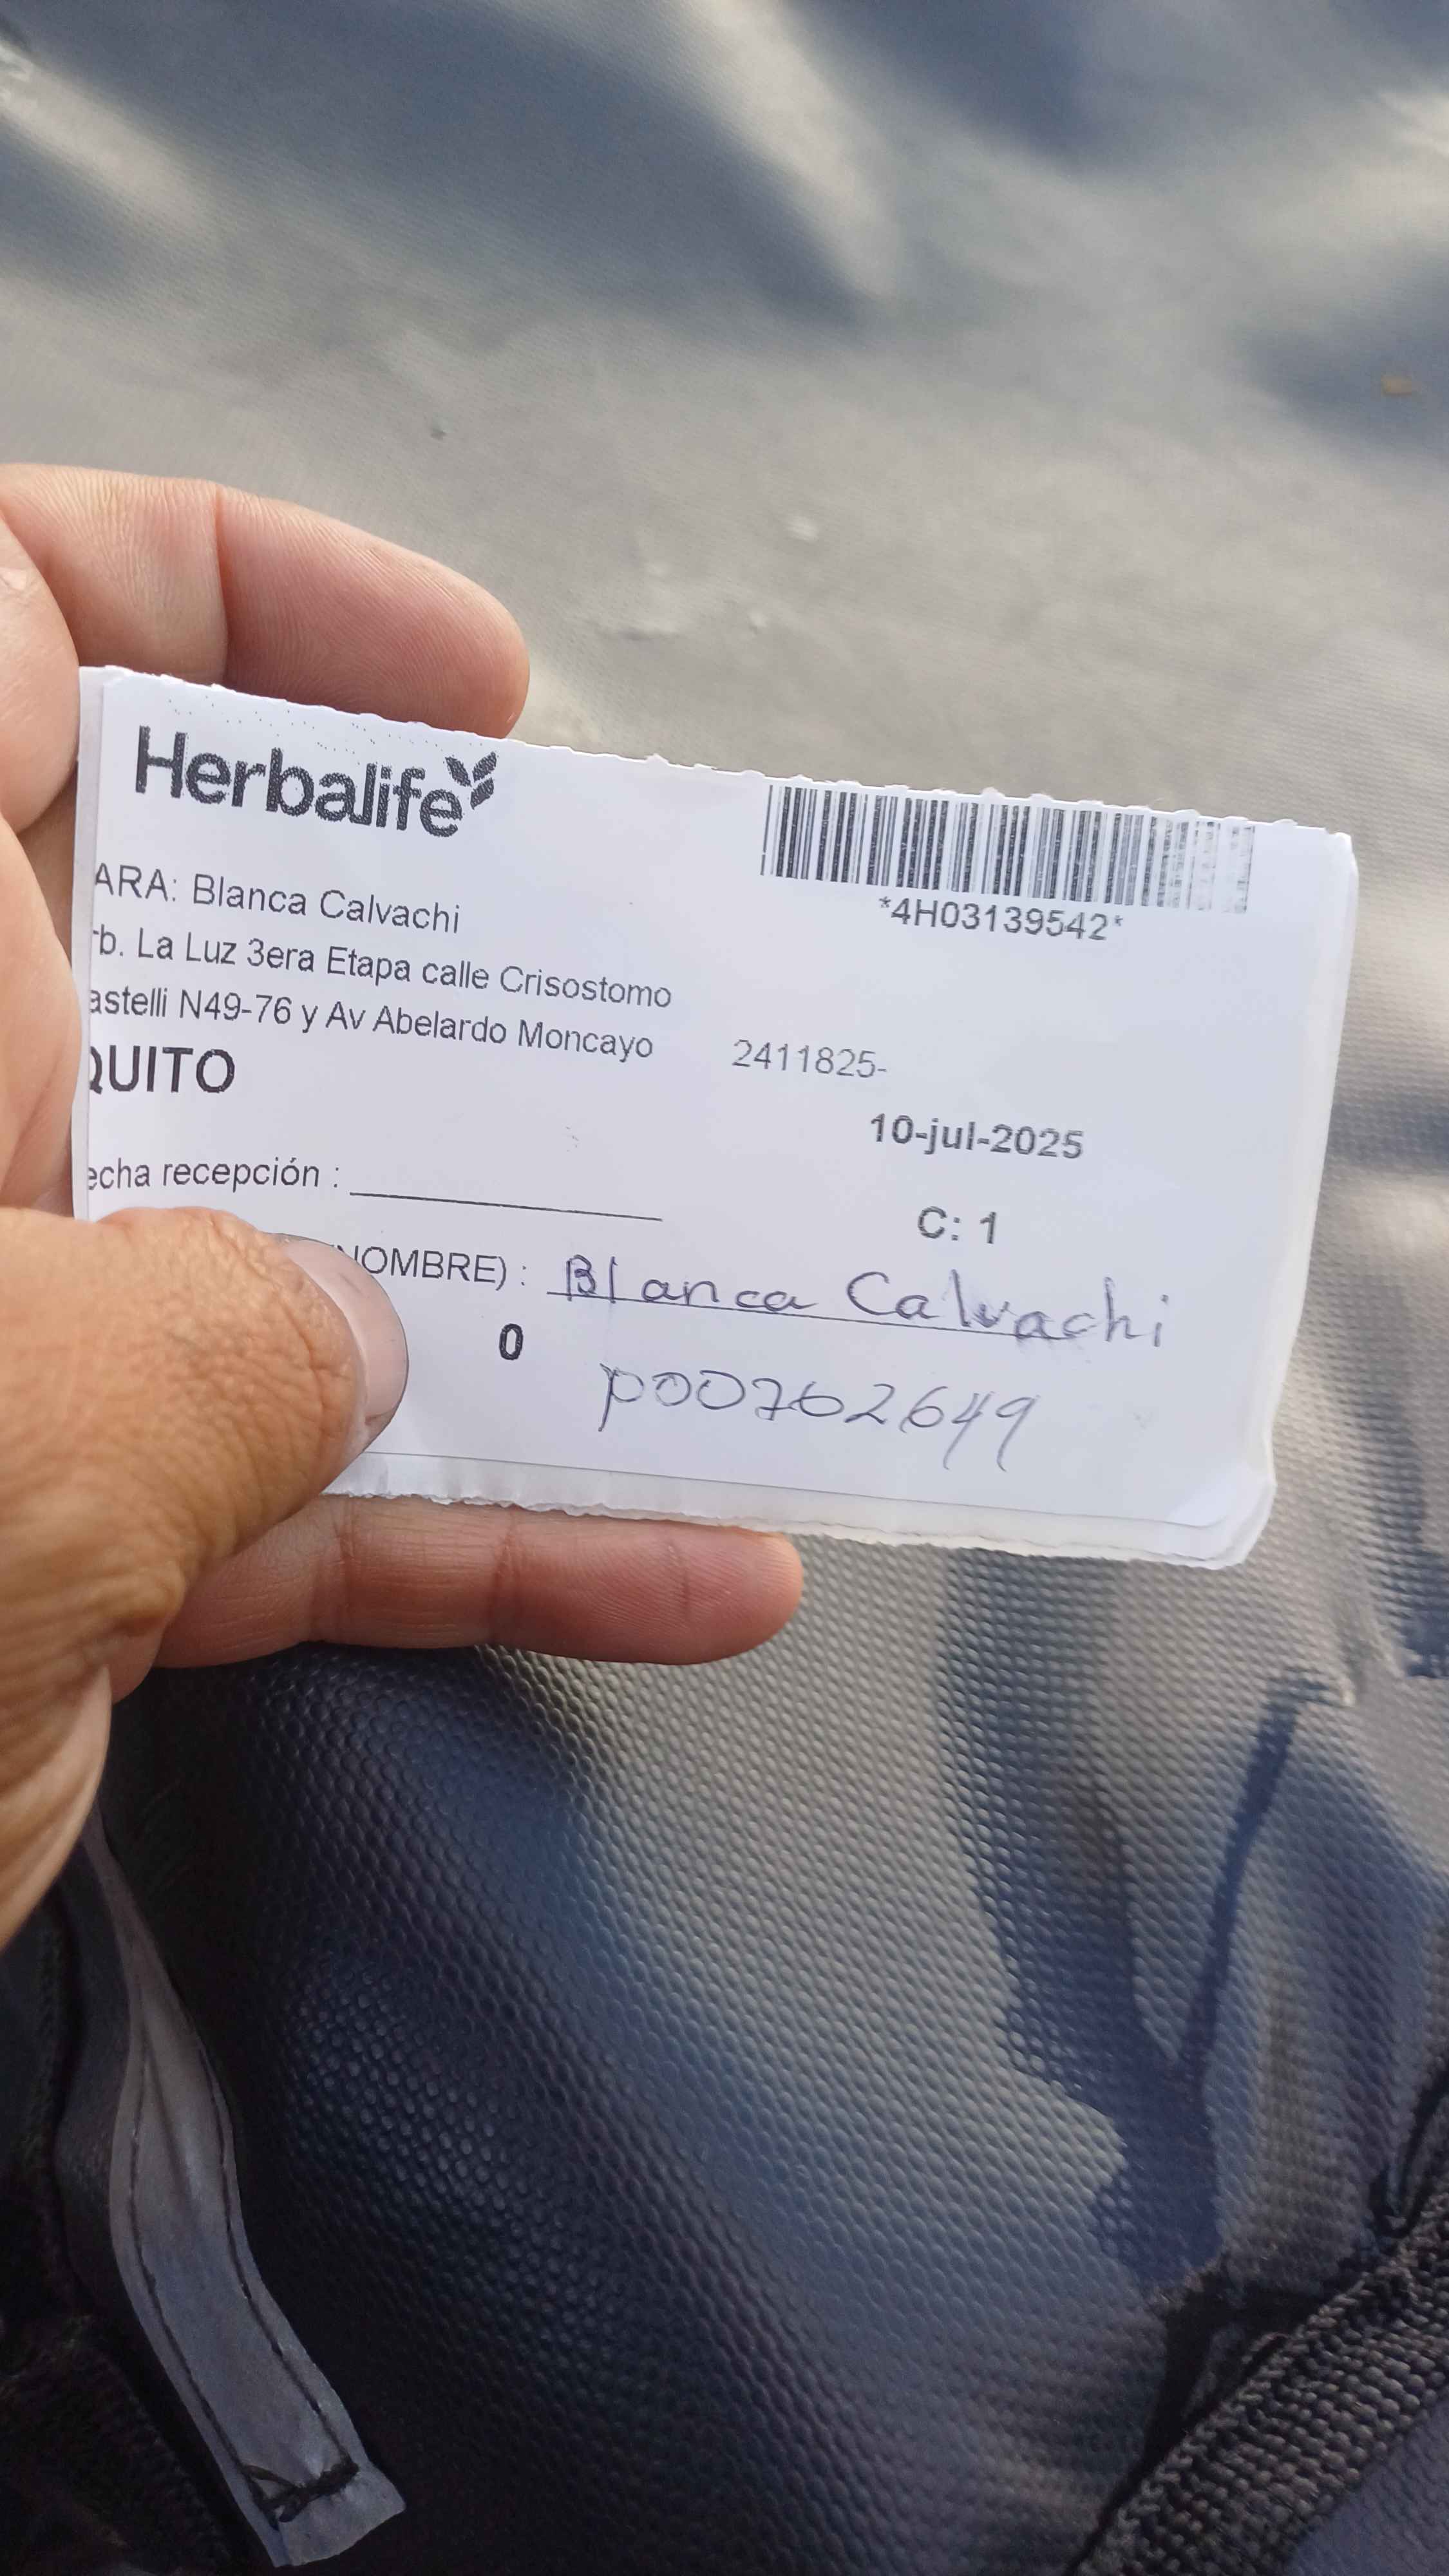 Herbalife
*4H03139542*
ARA: Blanca Calvachi
rb. La Luz 3era Etapa calle Crisostomo
astelli N49-76 y Av Abelardo Moncayo 2411825-
QUITO
10-jul-2025
echa recepción :
C: 1
NOMBRE) : Blanca Calvachi
0
p00762649